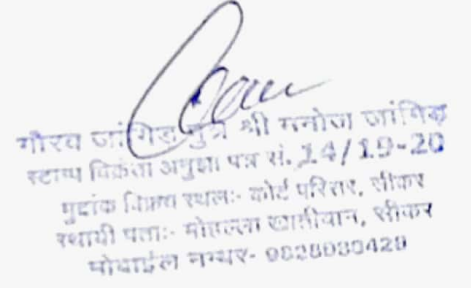 गौरव जांगिड पुत्र श्री मनोज जांगिड
स्टाम्प विक्रेता अनुज्ञा पत्र सं. 14/19-20
मुद्रांक विक्रय स्थल:- कोर्ट परिसर, सीकर
स्थायी पता:- मोहल्ला खातीवान, सीकर
मोबाईल नम्बर-